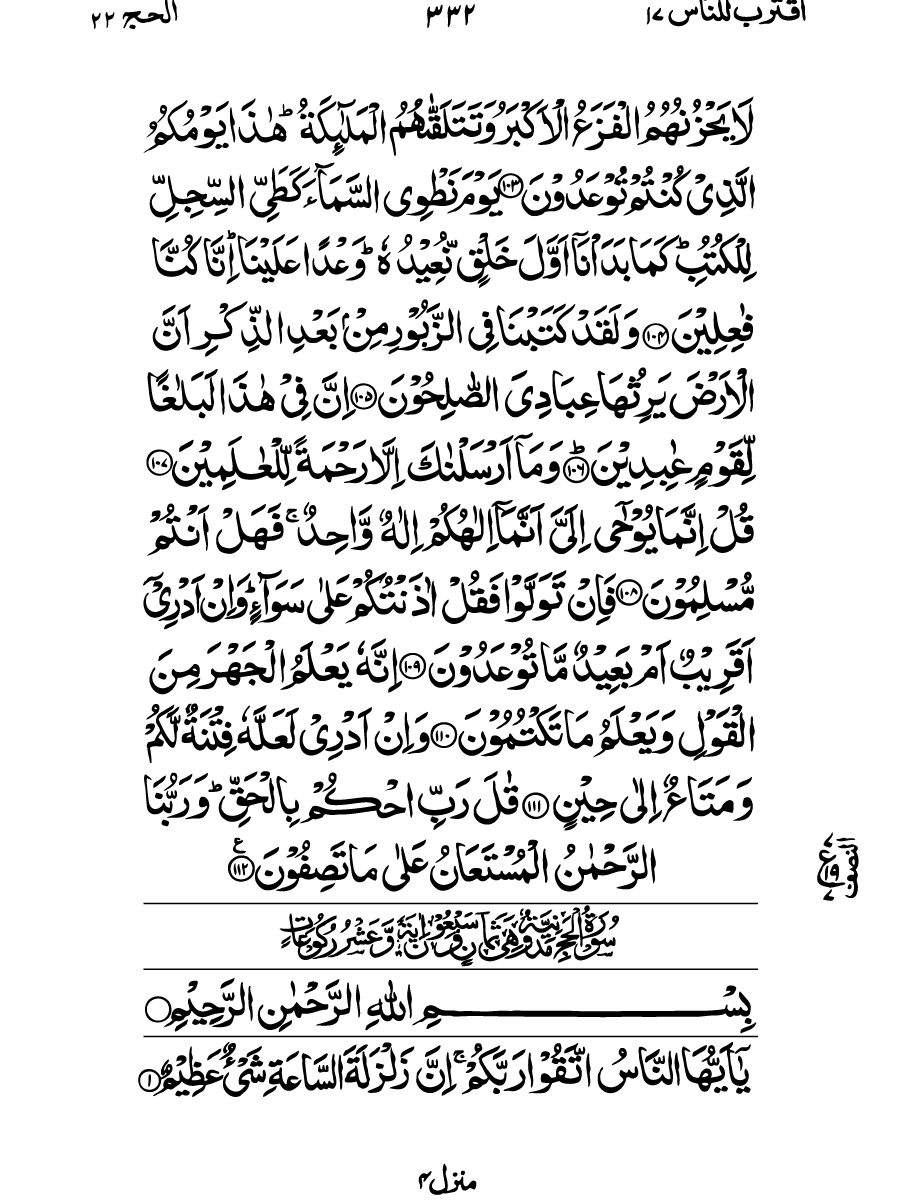 اقترب للناس ١٧ ٣٣٢ الحج ٢٢
لَا يَحْزُنُهُمُ الْفَزَعُ الْاَكْبَرُ وَتَتَلَقّٰىهُمُ الْمَلٰٓئِكَةُ ؕ هٰذَا يَوْمُكُمُ
الَّذِىْ كُنْتُمْ تُوْعَدُوْنَ ﴿۱۰۳﴾ يَوْمَ نَطْوِى السَّمَآءَ كَطَىِّ السِّجِلِّ
لِلْكُتُبِ ؕ كَمَا بَدَاْنَاۤ اَوَّلَ خَلْقٍ نُّعِيْدُهٗ ؕ وَعْدًا عَلَيْنَا ؕ اِنَّا كُنَّا
فٰعِلِيْنَ ﴿۱۰۴﴾ وَلَقَدْ كَتَبْنَا فِى الزَّبُوْرِ مِنْۢ بَعْدِ الذِّكْرِ اَنَّ
الْاَرْضَ يَرِثُهَا عِبَادِىَ الصّٰلِحُوْنَ ﴿۱۰۵﴾ اِنَّ فِىْ هٰذَا لَبَلٰغًا
لِّقَوْمٍ عٰبِدِيْنَ ؕ ﴿۱۰۶﴾ وَمَاۤ اَرْسَلْنٰكَ اِلَّا رَحْمَةً لِّلْعٰلَمِيْنَ ﴿۱۰۷﴾
قُلْ اِنَّمَا يُوْحٰۤى اِلَىَّ اَنَّمَاۤ اِلٰهُكُمْ اِلٰهٌ وَّاحِدٌ ۚ فَهَلْ اَنْتُمْ
مُّسْلِمُوْنَ ﴿۱۰۸﴾ فَاِنْ تَوَلَّوْا فَقُلْ اٰذَنْتُكُمْ عَلٰى سَوَآءٍ ؕ وَاِنْ اَدْرِىْۤ
اَقَرِيْبٌ اَمْ بَعِيْدٌ مَّا تُوْعَدُوْنَ ﴿۱۰۹﴾ اِنَّهٗ يَعْلَمُ الْجَهْرَ مِنَ
الْقَوْلِ وَيَعْلَمُ مَا تَكْتُمُوْنَ ﴿۱۱۰﴾ وَاِنْ اَدْرِىْ لَعَلَّهٗ فِتْنَةٌ لَّكُمْ
وَمَتَاعٌ اِلٰى حِيْنٍ ﴿۱۱۱﴾ قٰلَ رَبِّ احْكُمْ بِالْحَقِّ ؕ وَرَبُّنَا
الرَّحْمٰنُ الْمُسْتَعَانُ عَلٰى مَا تَصِفُوْنَ ﴿۱۱۲﴾ ع
النصف
ع ١٩ ٧
سُوْرَةُ الْحَجِّ مَدَنِيَّةٌ وَّهِىَ ثَمَانٍ وَّسَبْعُوْنَ اٰيَةً وَّعَشْرُ رُكُوْعَاتٍ
بِسْمِ اللّٰهِ الرَّحْمٰنِ الرَّحِيْمِ
يٰۤاَيُّهَا النَّاسُ اتَّقُوْا رَبَّكُمْ ۚ اِنَّ زَلْزَلَةَ السَّاعَةِ شَىْءٌ عَظِيْمٌ ﴿۱﴾
منزل ۴